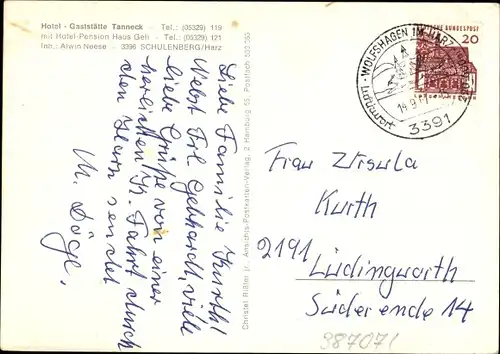 Hotel - Gaststätte Tanneck - Tel.: (05329) 119
mit Hotel-Pension Haus Geli - Tel.: (05329) 121
Inh.: Alwin Neese - 3396 SCHULENBERG/Harz
Liebe Familie Kurth!
Nebst Frl. Gebhardt, viele
liebe Grüße von einer
herrlichen Fahrt durch
den Harz sendet
M. Döge.
Christel Rißler jr., Ansichts-Postkarten-Verlag, 2 Hamburg 55, Postfach 550 365
WOLFSHAGEN IM HARZ
3391
DEUTSCHE BUNDESPOST
20
Frau Ursula
Kurth
2191 Lüdingworth
Süderende 14
387071